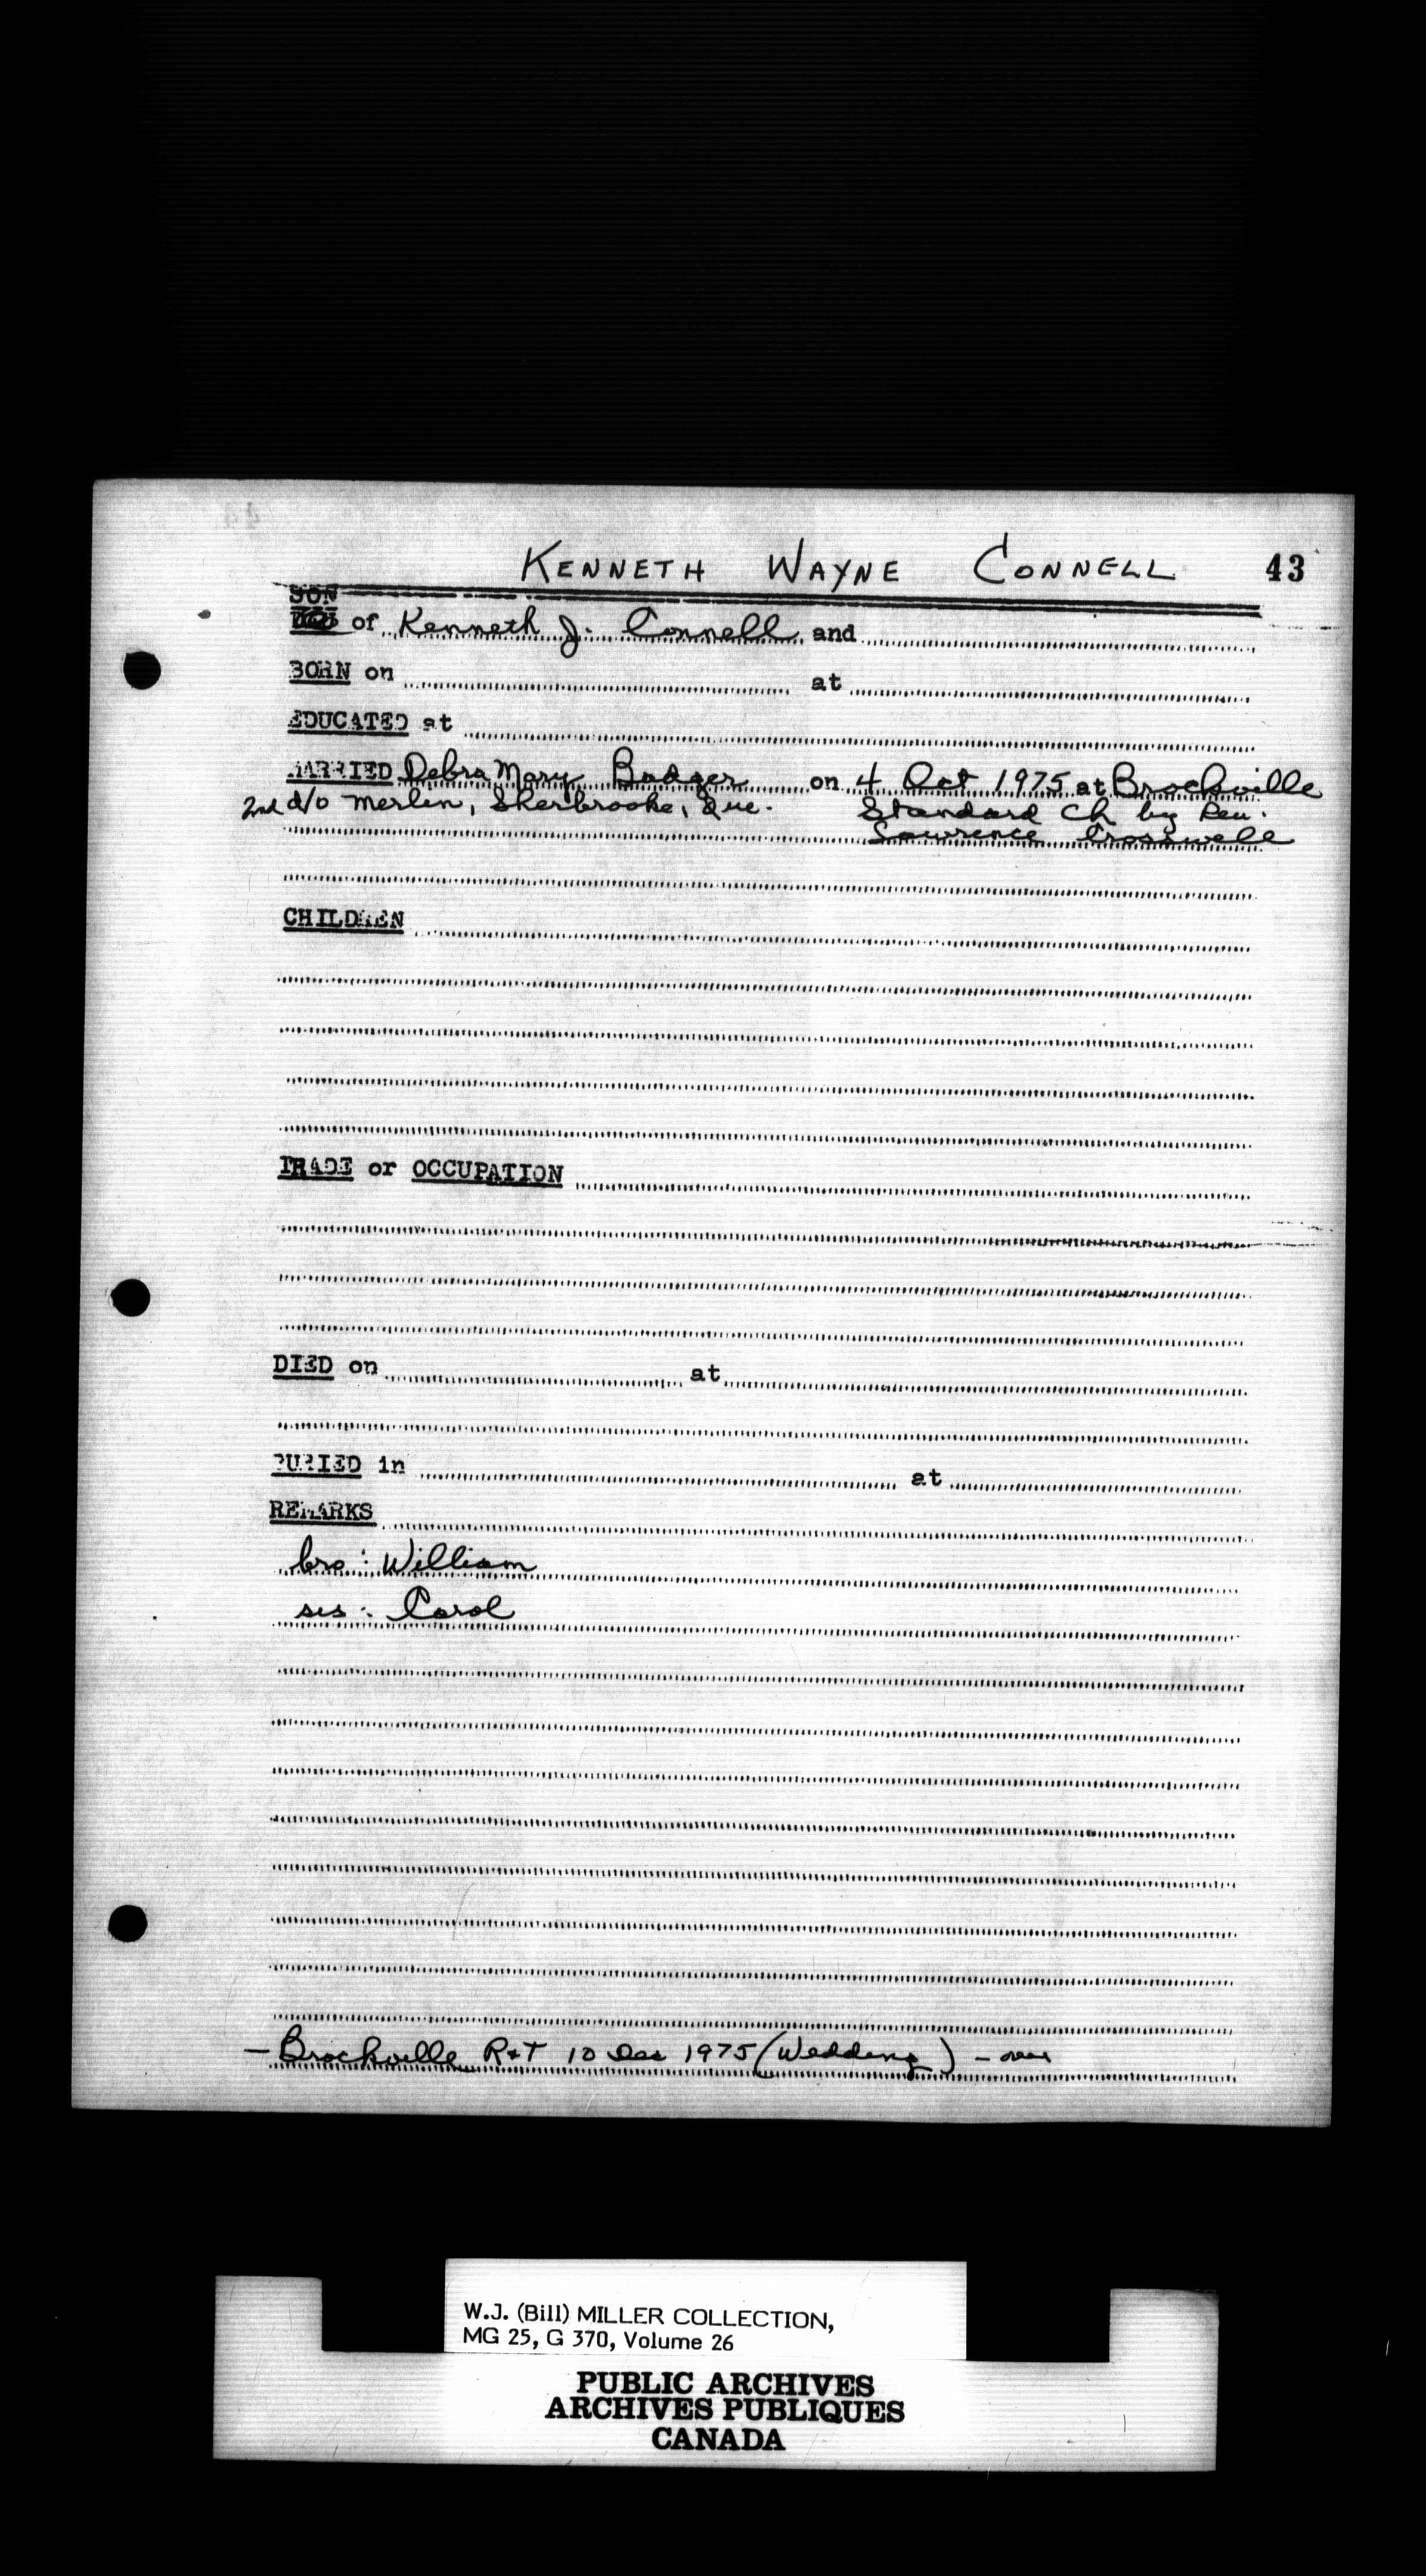 KENNETH WAYNE CONNELL 43
SON
of Kenneth J. Connell and
BORN on at
EDUCATED at
MARRIED Debra Mary Badger on 4 Oct 1975 at Brockville
2nd d/o Merlin, Sherbrooke, Que. Standard Ch by Rev.
Lawrence Crosswell
CHILDREN
TRADE or OCCUPATION
DIED on at
BURIED in at
REMARKS
bro: William
sis: Carol
- Brockville R&T 10 Dec 1975 (Wedding) - over
W.J. (Bill) MILLER COLLECTION,
MG 25, G 370, Volume 26
PUBLIC ARCHIVES
ARCHIVES PUBLIQUES
CANADA